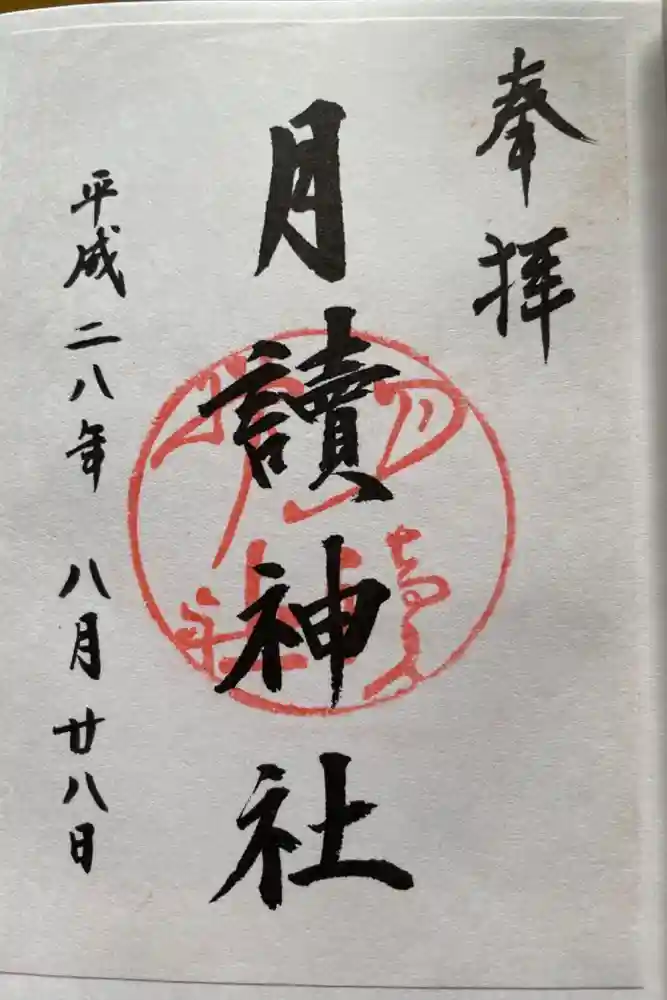 奉拝
月讀神社
平成二八年 八月廿八日